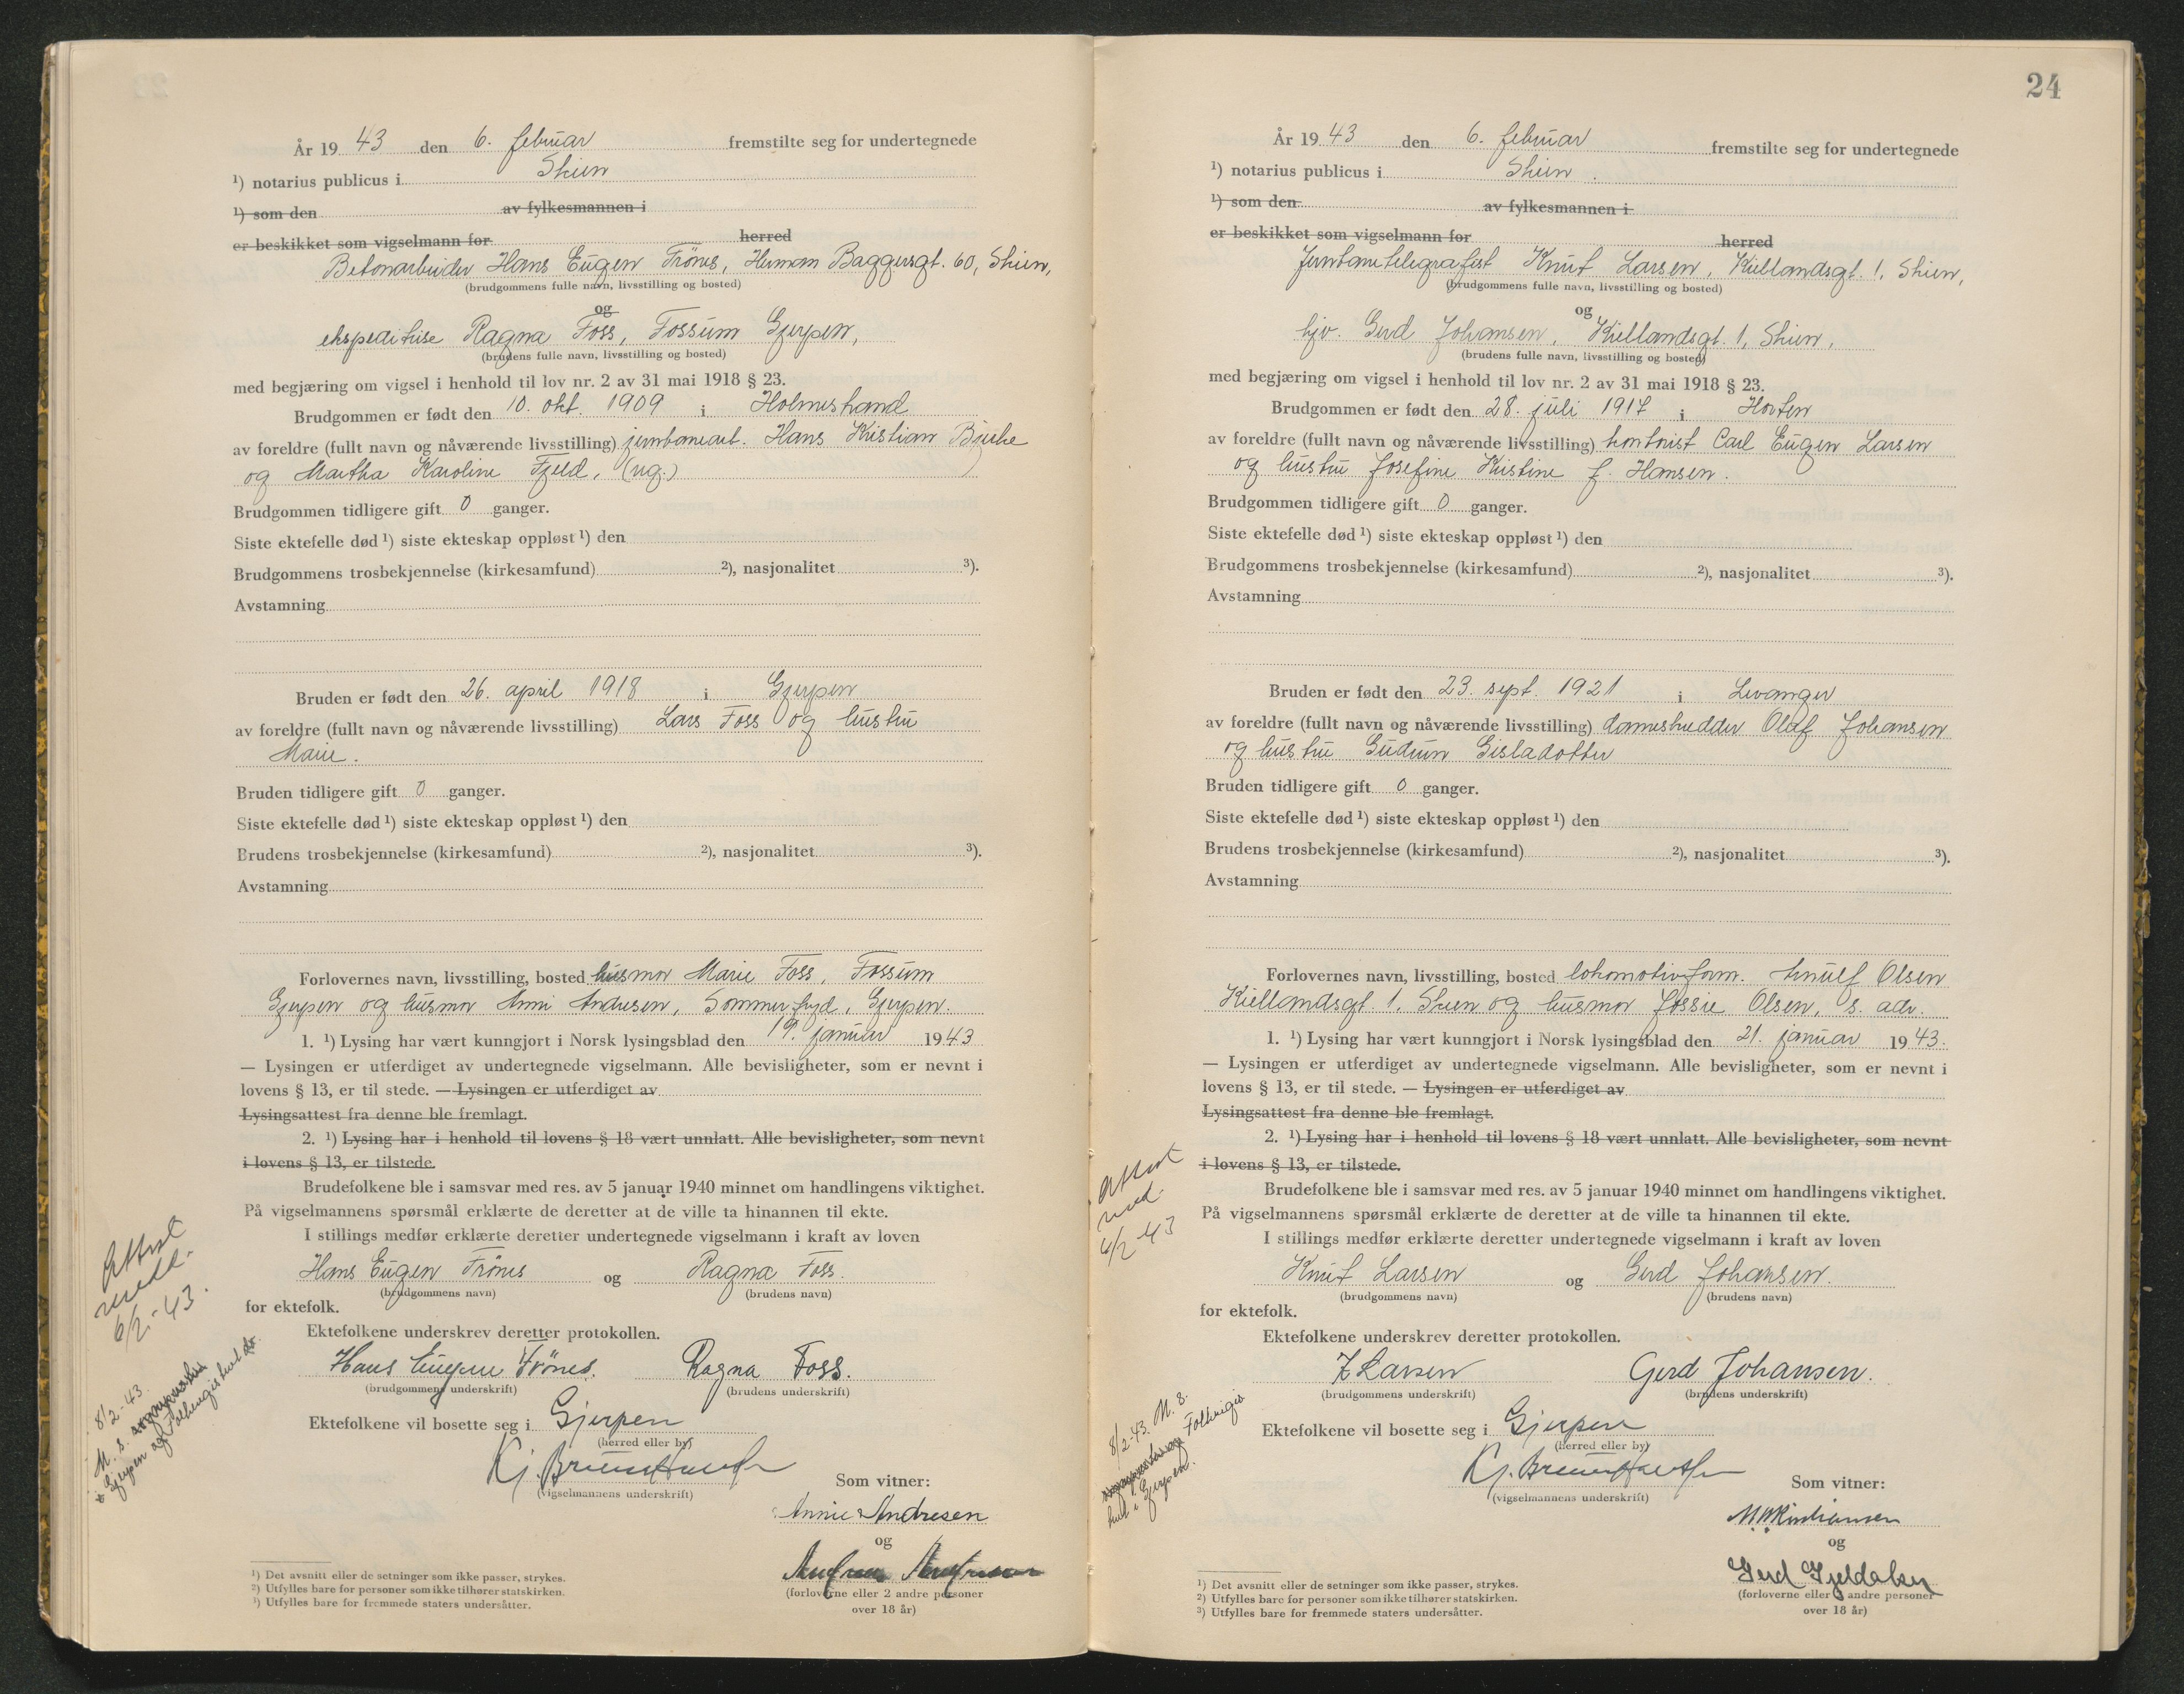 År 19 43 den 6. februar fremstilte seg for undertegnede
¹) notarius publicus i Skien
¹) som den av fylkesmannen i
er beskikket som vigselmann for herred
Betonarbeider Hans Eugen Frönes, Herman Baggersgt. 60, Skien,
(brudgommens fulle navn, livsstilling og bosted)
og
ekspeditrise Ragna Foss, Fossum Gjerpen,
(brudens fulle navn, livsstilling og bosted)
med begjæring om vigsel i henhold til lov nr. 2 av 31 mai 1918 § 23.
Brudgommen er født den 10. okt. 1909 i Holmestrand
av foreldre (fullt navn og nåværende livsstilling) jernbanearb. Hans Kristian Bjerke
og Martha Karoline Fjeld, (ug.)
Brudgommen tidligere gift 0 ganger.
Siste ektefelle død ¹) siste ekteskap oppløst ¹) den
Brudgommens trosbekjennelse (kirkesamfund) ²), nasjonalitet ³).
Avstamning
Bruden er født den 26. april 1918 i Gjerpen
av foreldre (fullt navn og nåværende livsstilling) Lars Foss og hustru
Marie.
Bruden tidligere gift 0 ganger.
Siste ektefelle død ¹) siste ekteskap oppløst ¹) den
Brudens trosbekjennelse (kirkesamfund) ²), nasjonalitet ³).
Avstamning
Forlovernes navn, livsstilling, bosted husmor Marie Foss, Fossum
Gjerpen og husmor Anni Andresen, Sommerfryd, Gjerpen.
1. ¹) Lysing har vært kunngjort i Norsk lysingsblad den 19. januar 1943
— Lysingen er utferdiget av undertegnede vigselmann. Alle bevisligheter, som er nevnt i
lovens § 13, er til stede. — Lysingen er utferdiget av
Lysingsattest fra denne ble fremlagt.
2. ¹) Lysing har i henhold til lovens § 18 vært unnlatt. Alle bevisligheter, som nevnt
i lovens § 13, er tilstede.
Brudefolkene ble i samsvar med res. av 5 januar 1940 minnet om handlingens viktighet.
På vigselmannens spørsmål erklærte de deretter at de ville ta hinannen til ekte.
I stillings medfør erklærte deretter undertegnede vigselmann i kraft av loven
Hans Eugen Frönes og Ragna Foss.
(brudgommens navn) (brudens navn)
for ektefolk.
Ektefolkene underskrev deretter protokollen.
Hans Eugen Frönes. Ragna Foss.
(brudgommens underskrift) (brudens underskrift)
Ektefolkene vil bosette seg i Gjerpen
(herred eller by)
(vigselmannens underskrift)
Som vitner:
Annie Andresen
og
(forloverne eller 2 andre personer
over 18 år)
Attest
medd.
6/2-43.
8/2-43.
M. s.
i Gjerpen og Folkeregisteret do.
¹) Det avsnitt eller de setninger som ikke passer, strykes.
²) Utfylles bare for personer som ikke tilhører statskirken.
³) Utfylles bare for fremmede staters undersåtter.
24
År 19 43 den 6. februar fremstilte seg for undertegnede
¹) notarius publicus i Skien.
¹) som den av fylkesmannen i
er beskikket som vigselmann for herred
Jernbanetelegrafist Knut Larsen, Kiellandsgt. 1, Skien,
(brudgommens fulle navn, livsstilling og bosted)
og
hjv. Gerd Johansen, Kiellandsgt. 1, Skien,
(brudens fulle navn, livsstilling og bosted)
med begjæring om vigsel i henhold til lov nr. 2 av 31 mai 1918 § 23.
Brudgommen er født den 28. juli 1917 i Horten
av foreldre (fullt navn og nåværende livsstilling) kontorist Carl Eugen Larsen
og hustru Josefine Kristine f. Hansen.
Brudgommen tidligere gift 0 ganger.
Siste ektefelle død ¹) siste ekteskap oppløst ¹) den
Brudgommens trosbekjennelse (kirkesamfund) ²), nasjonalitet ³).
Avstamning
Bruden er født den 23. sept. 1921 i Levanger
av foreldre (fullt navn og nåværende livsstilling) dameskredder Olaf Johansen
og hustru Gudrun Gisladotter
Bruden tidligere gift 0 ganger.
Siste ektefelle død ¹) siste ekteskap oppløst ¹) den
Brudens trosbekjennelse (kirkesamfund) ²), nasjonalitet ³).
Avstamning
Forlovernes navn, livsstilling, bosted lokomotivform. Arnulf Olsen
Kiellandsgt. 1, Skien og husmor Jossie Olsen, s. adr.
1. ¹) Lysing har vært kunngjort i Norsk lysingsblad den 21. januar 1943.
— Lysingen er utferdiget av undertegnede vigselmann. Alle bevisligheter, som er nevnt i
lovens § 13, er til stede. — Lysingen er utferdiget av
Lysingsattest fra denne ble fremlagt.
2. ¹) Lysing har i henhold til lovens § 18 vært unnlatt. Alle bevisligheter, som nevnt
i lovens § 13, er tilstede.
Brudefolkene ble i samsvar med res. av 5 januar 1940 minnet om handlingens viktighet.
På vigselmannens spørsmål erklærte de deretter at de ville ta hinannen til ekte.
I stillings medfør erklærte deretter undertegnede vigselmann i kraft av loven
Knut Larsen og Gerd Johansen.
(brudgommens navn) (brudens navn)
for ektefolk.
Ektefolkene underskrev deretter protokollen.
K Larsen Gerd Johansen.
(brudgommens underskrift) (brudens underskrift)
Ektefolkene vil bosette seg i Gjerpen
(herred eller by)
(vigselmannens underskrift)
Som vitner:
og
(forloverne eller 2 andre personer
over 18 år)
Attest
med.
6/2-43
8/2-43. M. s.
Folkeregis
i Gjerpen.
¹) Det avsnitt eller de setninger som ikke passer, strykes.
²) Utfylles bare for personer som ikke tilhører statskirken.
³) Utfylles bare for fremmede staters undersåtter.